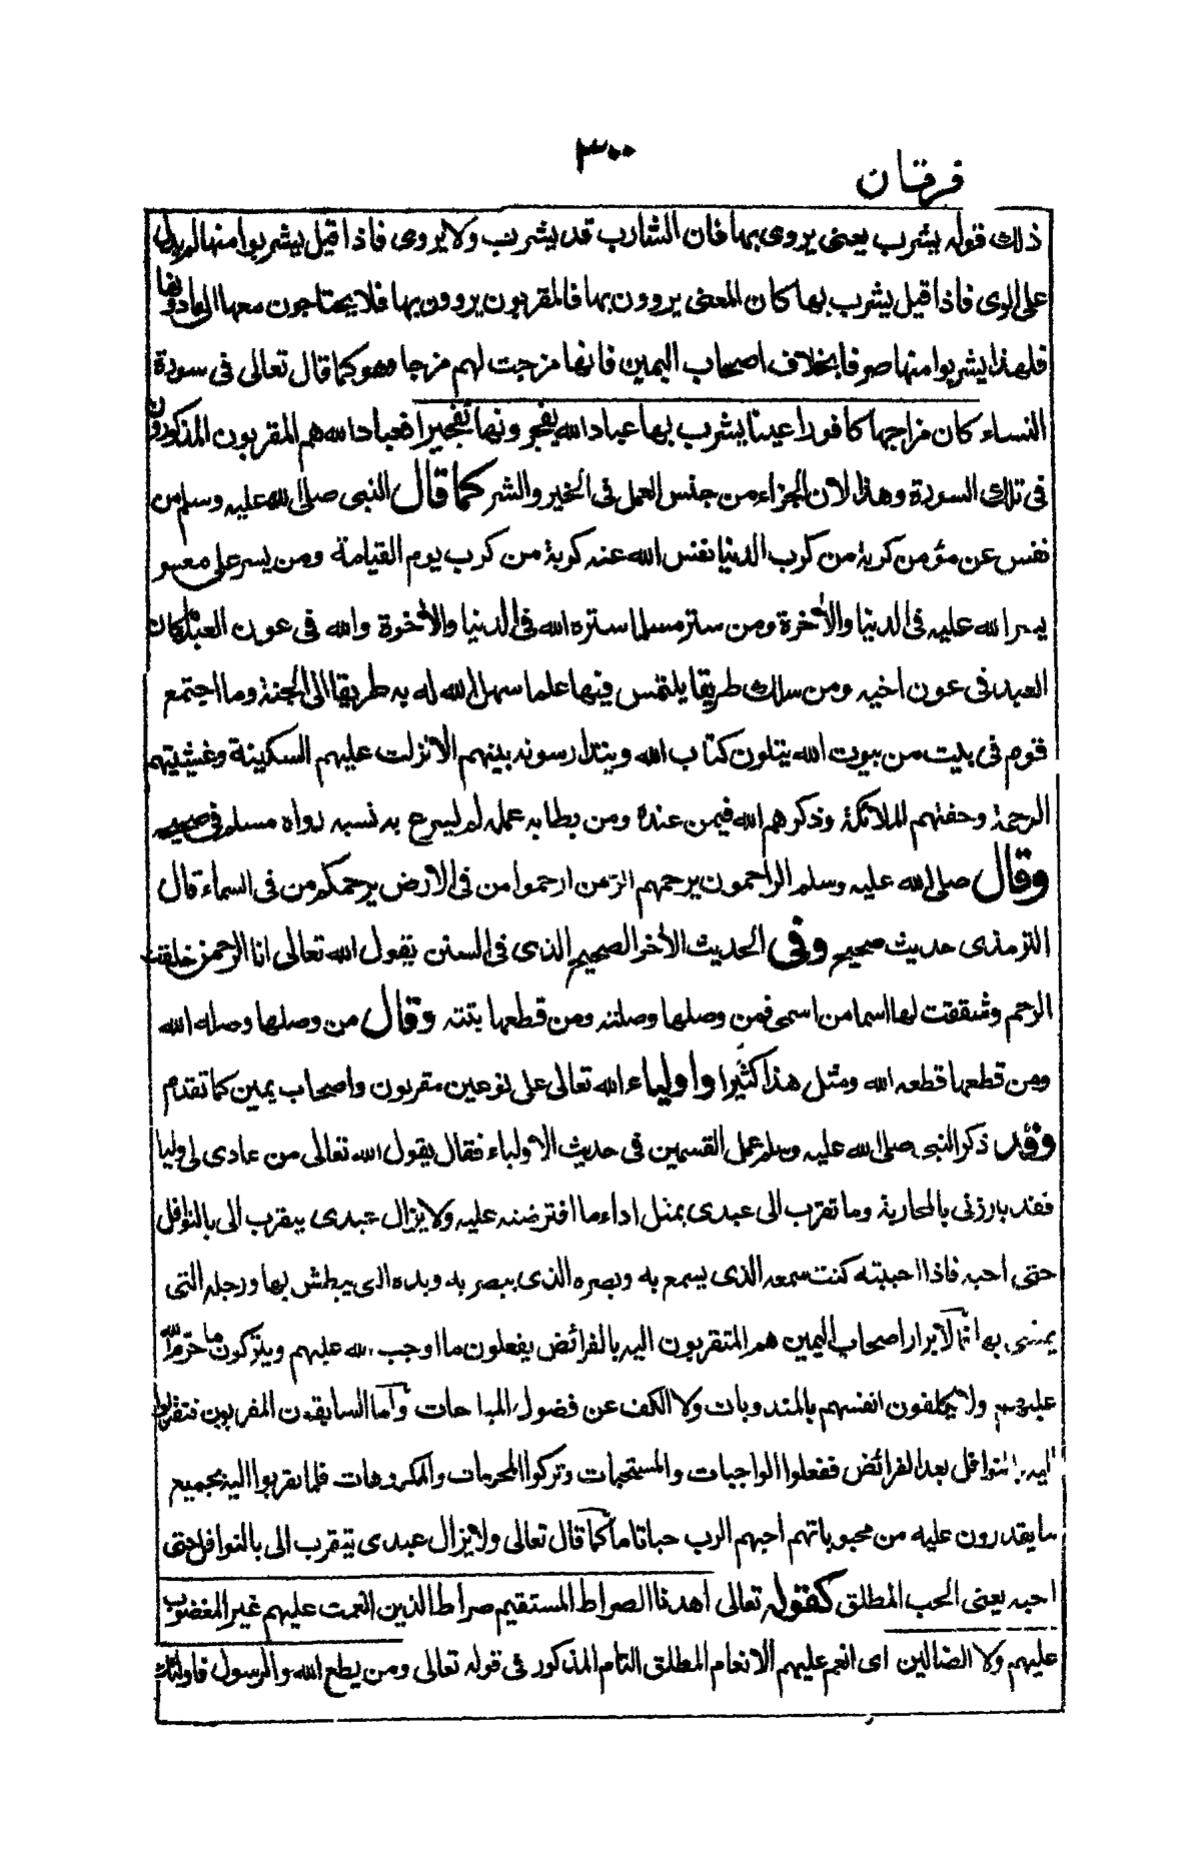 ٣٠٠
فرقان
ذلك قوله يشرب يعنى يروى بها فان الشارب قد يشرب ولا يروى فاذا قيل يشربوا منها لم يدل
على الرى فاذا قيل يشرب بها كان المعنى يروون بها فالمقربون يروون بها فلا يحتاجون معها الى ما دونها
فلهذا يشربوا منها صرفا بخلاف اصحاب اليمين فانها مزجت لهم مزجا وهو كما قال تعالى فى سورة
النساء كان مزاجها كافورا عينا يشرب بها عباد الله يفجرونها تفجيرا فعباد الله هم المقربون المذكورون
فى تلك السورة وهذا لان الجزاء من جنس العمل فى الخير والشر كما قال النبى صلى الله عليه وسلم من
نفس عن مؤمن كربة من كرب الدنيا نفس الله عنه كربة من كرب يوم القيامة ومن يسر على معسر
يسر الله عليه فى الدنيا والأخرة ومن ستر مسلما ستره الله فى الدنيا والأخرة والله فى عون العبد ما كان
العبد فى عون اخيه ومن سلك طريقا يلتمس فيها علما سهل الله له به طريقا الى الجنة وما اجتمع
قوم فى بيت من بيوت الله يتلون كتاب الله ويتدارسونه بينهم الا نزلت عليهم السكينة وغشيتهم
الرحمة وحفتهم الملائكة وذكرهم الله فيمن عنده ومن بطا به عمله لم ليسرع به نسبه رواه مسلم فى صحيحه
وقال صلى الله عليه وسلم الراحمون يرحمهم الرحمن ارحموا من فى الارض يرحمكم من فى السماء قال
الترمذى حديث صحيح وفى الحديث الأخر الصحيح الذى فى السنن يقول الله تعالى انا الرحمن خلقت
الرحم وشققت لها اسما من اسمى فمن وصلها وصلته ومن قطعها بتته وقال من وصلها وصله الله
ومن قطعها قطعه الله ومثل هذا كثيرا واولياء الله تعالى على نوعين مقربون واصحاب يمين كما تقدم
وقد ذكر النبى صلى الله عليه وسلم عمل القسمين فى حديث الاولياء فقال يقول الله تعالى من عادى لى وليا
فقد بارزنى بالمحاربة وما تقرب الى عبدى بمثل اداء ما افترضته عليه ولا يزال عبدى يتقرب الى بالنوافل
حتى احبه فاذا احببته كنت سمعه الذى يسمع به وبصره الذى يبصر به ويده التى يبطش بها ورجله التى
يمشى بها ثم الابرار اصحاب اليمين هم المتقربون اليه بالفرائض يفعلون ما اوجب الله عليهم ويتركون ما حرم الله
عليهم ولا يكلفون انفسهم بالمندوبات ولا الكف عن فضول المباحات وأما السابقون المقربون فتقربوا
اليه بالنوافل بعد الفرائض ففعلوا الواجبات والمستحبات وتركوا المحرمات والمكروهات فلما تقربوا اليه بجميع
ما يقدرون عليه من محبوباتهم احبهم الرب حبا تاما كما قال تعالى ولا يزال عبدى يتقرب الى بالنوافل حتى
احبه يعنى الحب المطلق كقوله تعالى اهدنا الصراط المستقيم صراط الذين انعمت عليهم غير المغضوب
عليهم ولا الضالين اى انعم عليهم الانعام المطلق التام المذكور فى قوله تعالى ومن يطع الله والرسول فاولئك